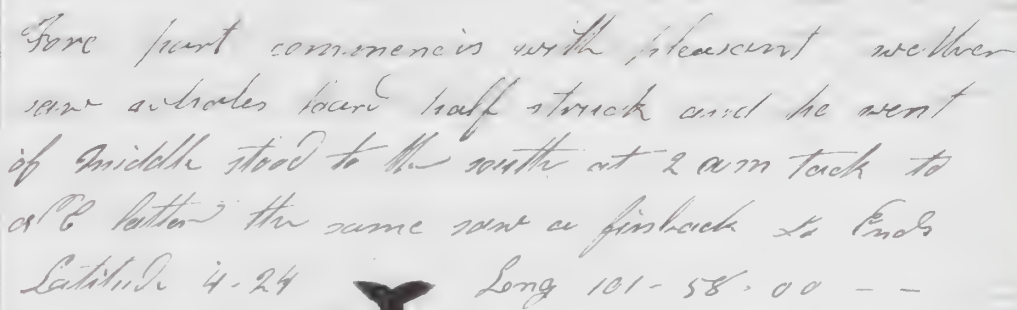 Fore part commencis with pleasant wether
saw whales half struck and he went
of middle stood to the south at 2 am tack to
latter the same saw a finback so Ends
Latitude 4-24 Long 101-58-00 - -